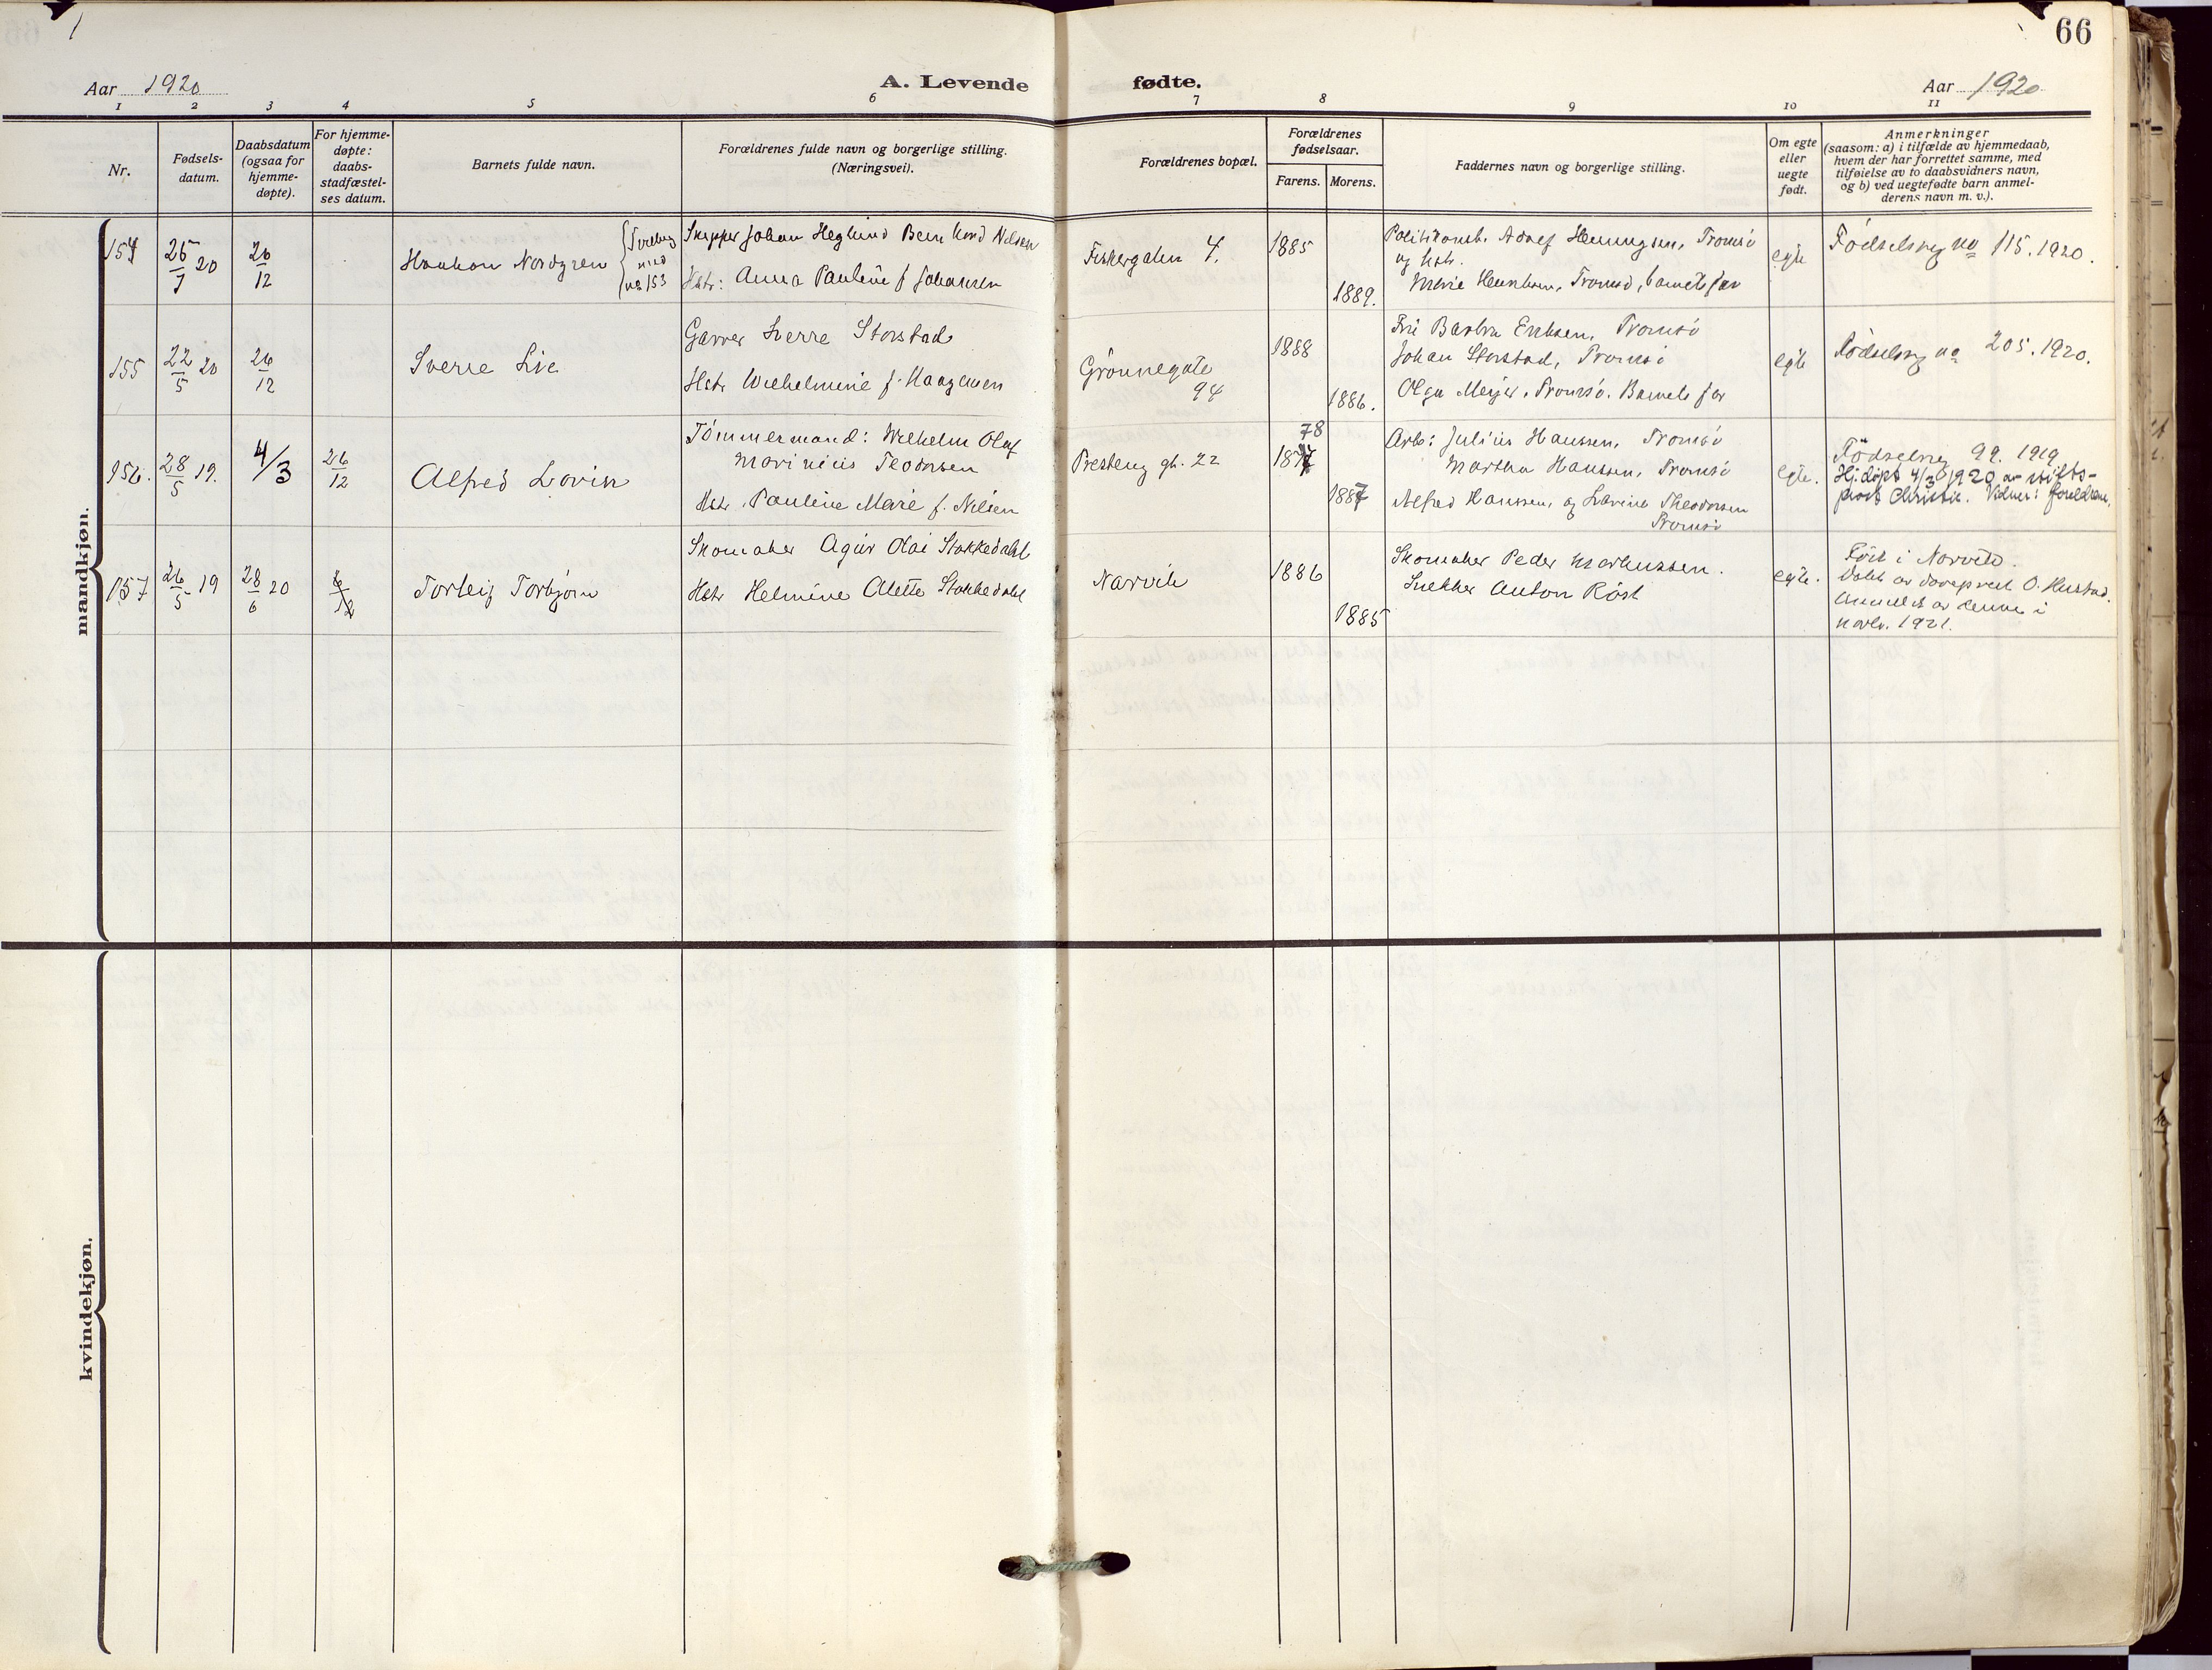 66
Aar 1920
A. Levende fødte.
Aar 1920
1 2 3 4 5 6 7 8 9 10 11
Nr.
Fødsels-
datum.
Daabsdatum
(ogsaa for
hjemme-
døpte).
For hjemme-
døpte:
daabs-
stadfæstel-
ses datum.
Barnets fulde navn.
Forældrenes fulde navn og borgerlige stilling.
(Næringsvei).
Forældrenes bopæl.
Forældrenes
fødselsaar.
Farens. Morens.
Faddernes navn og borgerlige stilling.
Om egte
eller
uegte
født.
Anmerkninger
(saasom: a) i tilfælde av hjemmedaab,
hvem der har forrettet samme, med
tilføielse av to daabsvidners navn,
og b) ved uegtefødte barn anmel-
derens navn m. v.).
mandkjøn.
154
25/7 20
26/12
Haakon Nordgren
{Tvilling
med
no 153
Skipper Johan Heglund Bernhard Nilsen
Hstr: Anna Pauline f Johansen
Fiskergaten 4.
1885
1889.
Politikonst. Adolf Henningsen, Tromsø
og hstr.
Marie, Tromsø, barnets far
egte
Fødselsreg no 115. 1920.
155
22/5 20
26/12
Sverre Lie
Garver Sverre Storstad
Hstr Wilhelmine f. Haagensen
Grønnegate
94
1888
1886.
Fru Barbra Eriksen, Tromsø
Johan Storstad, Tromsø
Olga Meyer, Tromsø. Barnets far
egte
Fødselsreg no 205. 1920.
156.
28/5 19.
4/3
26/12
Alfred Lovin
Tømmermand: Wilhelm Olaf
Marinius Teodorsen
Hstr. Pauline Marie f. Nilsen
Presteng gt. 22
78
1877
1887
Arb: Julius Hanssen, Tromsø
Martha Hanssen, Tromsø
Alfred Hanssen, og Lovine Theodorsen
Tromsø
egte.
Fødselsreg 99. 1919
Hj.døpt 4/3 1920 av stifts-
prost Christie. Vidner: foreldrene.
157
26/5 19
28/6 20
6/12
Torleig Torbjørn
Skomaker Agur Olai Stokkedahl
Hstr Helmine Alette Stokkedahl
Narvik
1886
1885
Skomaker Peder Markussen.
Snekker Anton Røst
egte.
Født i Narvik.
Døbt av sogneprest O. Hustad.
Anmeldt av denne i
novbr. 1921.
kvindekjøn.